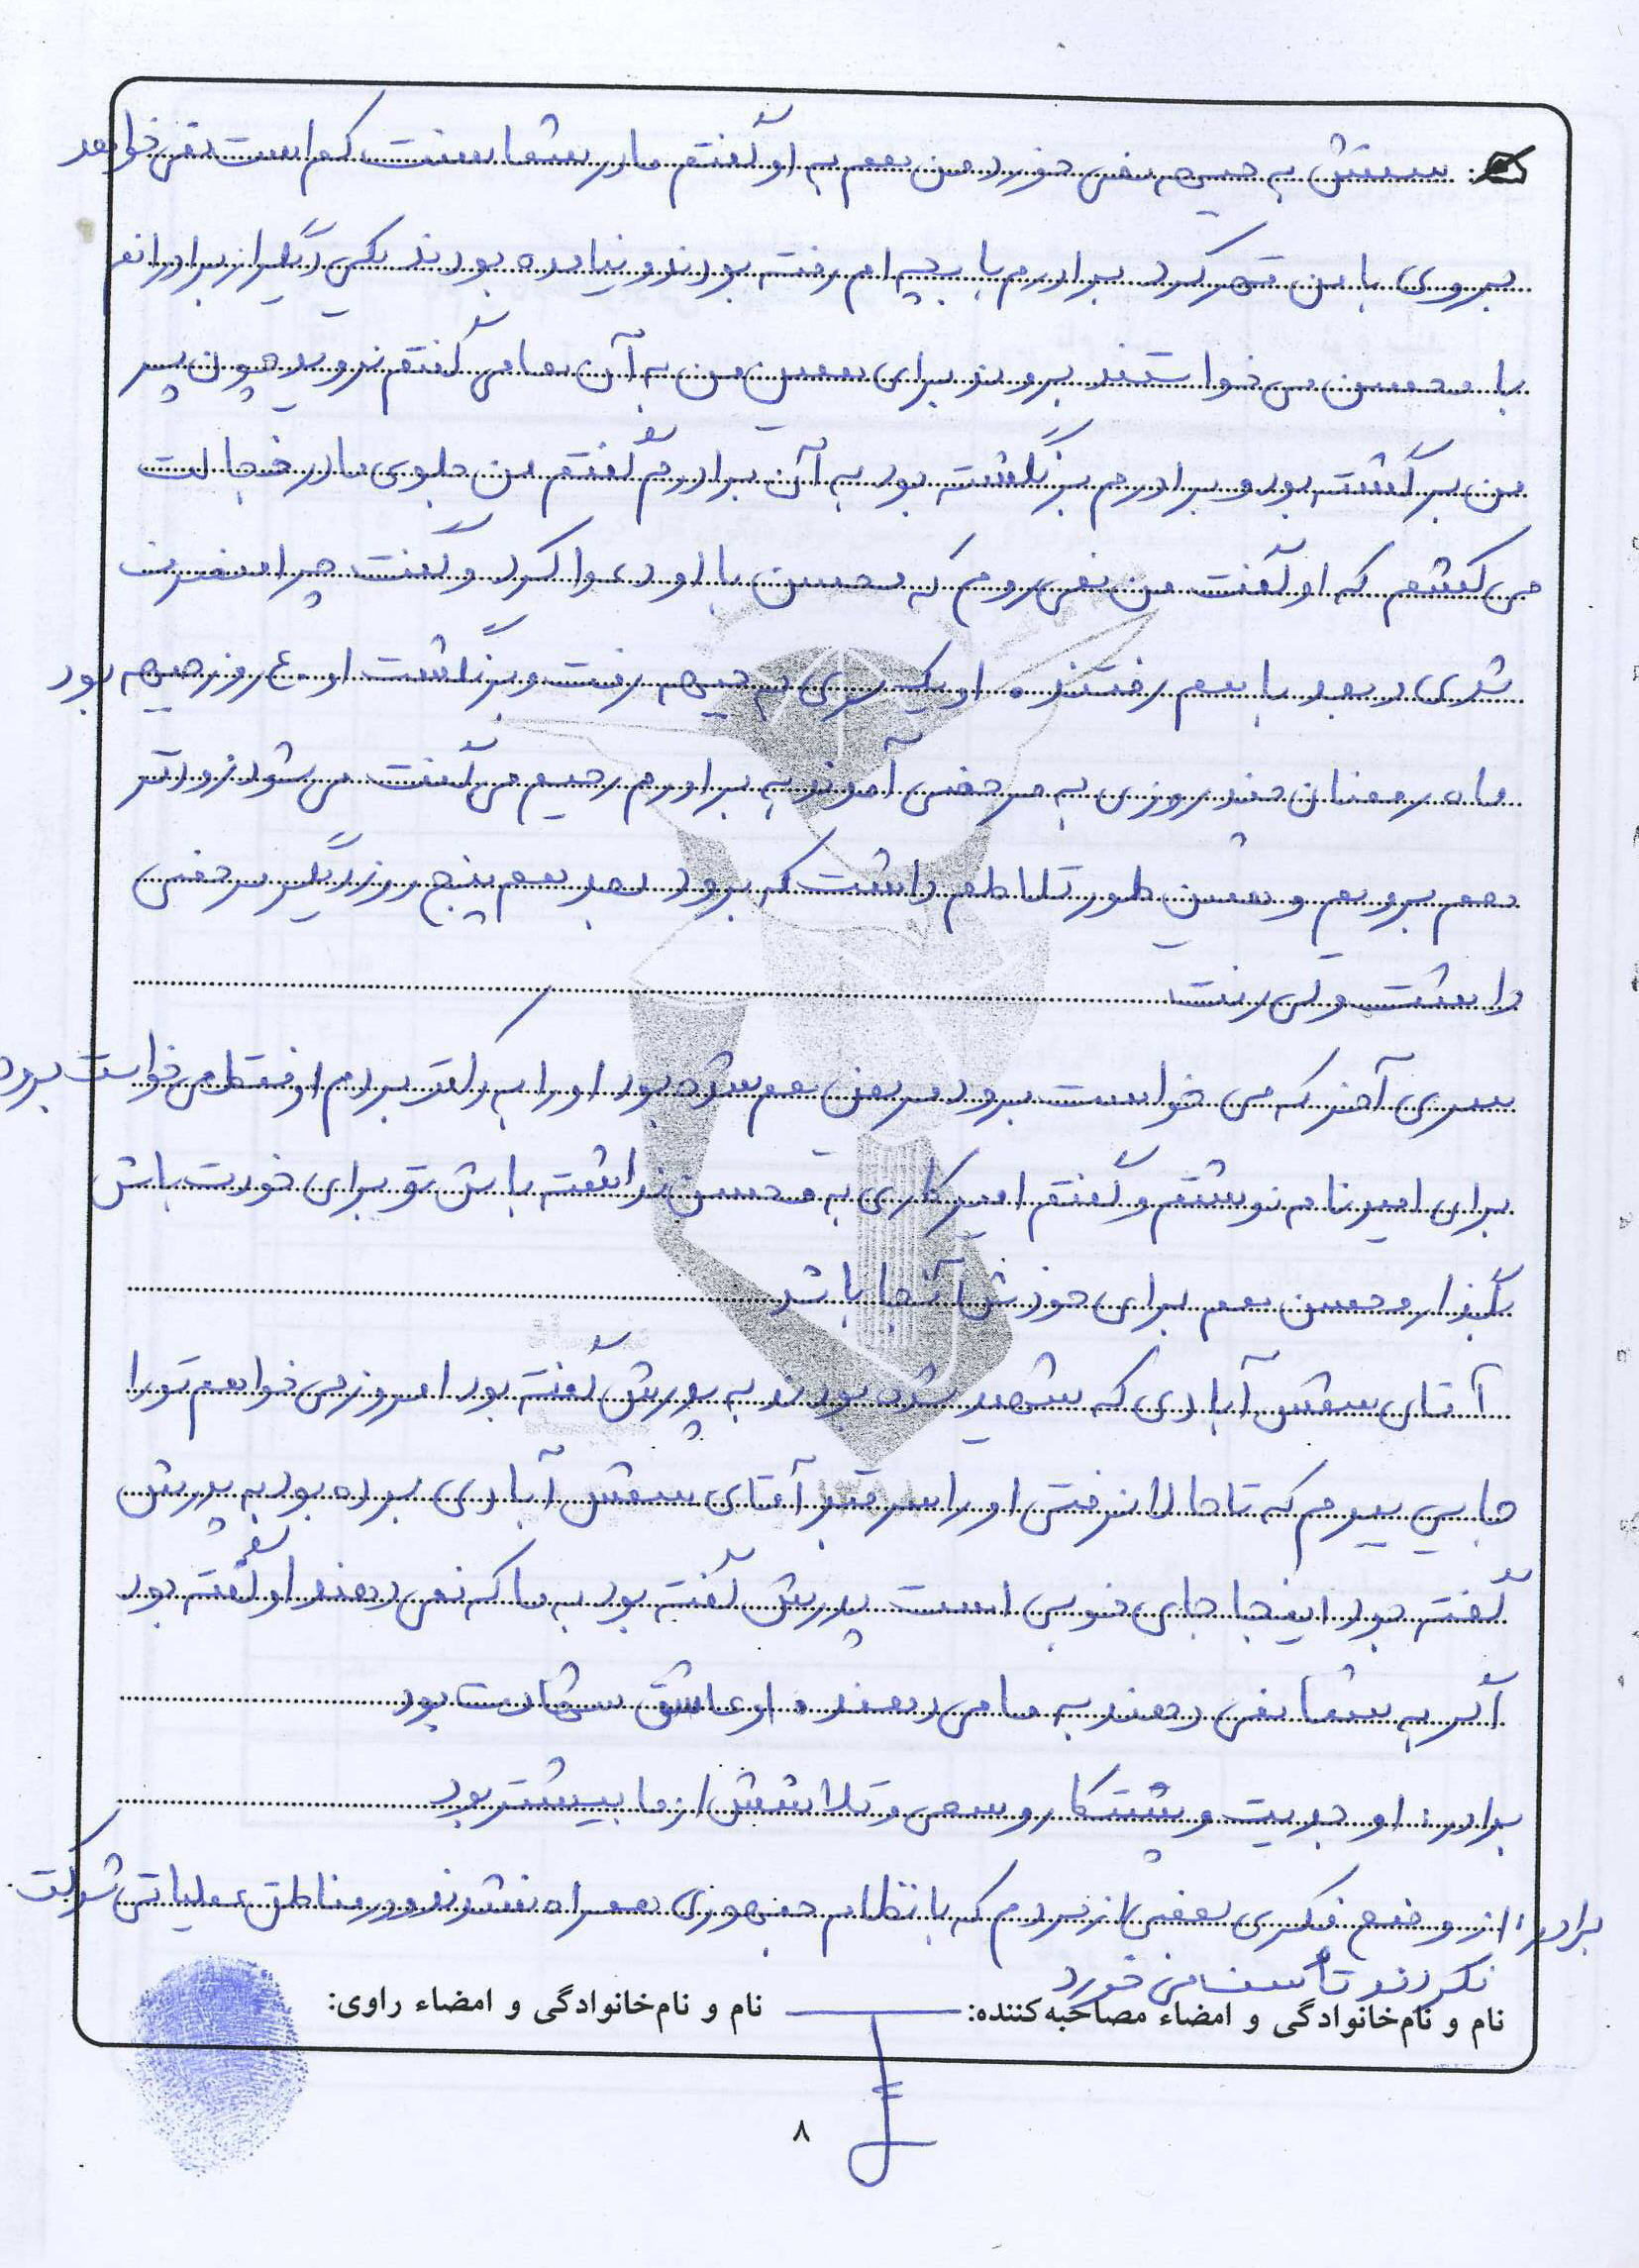 سنش به جبهه نمی خورد من هم به او گفتم مادر شما سنت کم است نمی خواهد
بروی با من قهر کرد برادرم با بچه ام رفته بودند و نیامده بودند یکی دیگر از برادرانم
با محسن می خواستند بروند برای همین من به آن ها می گفتم نروید چون پسر
من برگشته بود و برادرم برنگشته بود به آن برادرم گفتم من جلوی مادر خجالت
می کشم که او گفت من نمی روم که محسن با او دعوا کرد و گفت چرا منصرف
شدی و بعد با هم رفتند. او یک سری به جبهه رفت و برگشت او ۴۰ روز جبهه بود
ماه رمضان چند روزی به مرخصی آمدند به برادرم رحیم می گفت می شود زودتر
هم برویم و همین طور تلاطم داشت که برود بعد هم پنج روز دیگر مرخصی
داشت ولی رفت
سری آخر که می خواست برود مریض هم شده بود او را به دکتر بردم او فقط می خواست برود
برای امیر نامه نوشتم و گفتم امیر کاری به محسن نداشته باش تو برای خودت باش
بگذار محسن هم برای خودش آنجا باشد
آقای شش آبادی که شهید شده بودند به پدرش گفته بود امروز می خواهم تو را
جایی ببرم که تا حالا نرفتی او را سر قبر آقای شش آبادی برده بود به پدرش
گفته بود اینجا جای خوبی است پدرش گفته بود به ما که نمی دهند او گفته بود
اگر به شما نمی دهند به ما می دهند. او عاشق شهادت بود
برادر: او جدیت و پشتکار و سعی و تلاشش از ما بیشتر بود
برادر: از وضع فکری بعضی از مردم که با نظام جمهوری همراه نشدند و در مناطق عملیاتی شرکت
نکردند تأسف می خورد
نام و نام‌خانوادگی و امضاء مصاحبه‌کننده: نام و نام‌خانوادگی و امضاء راوی:
۸